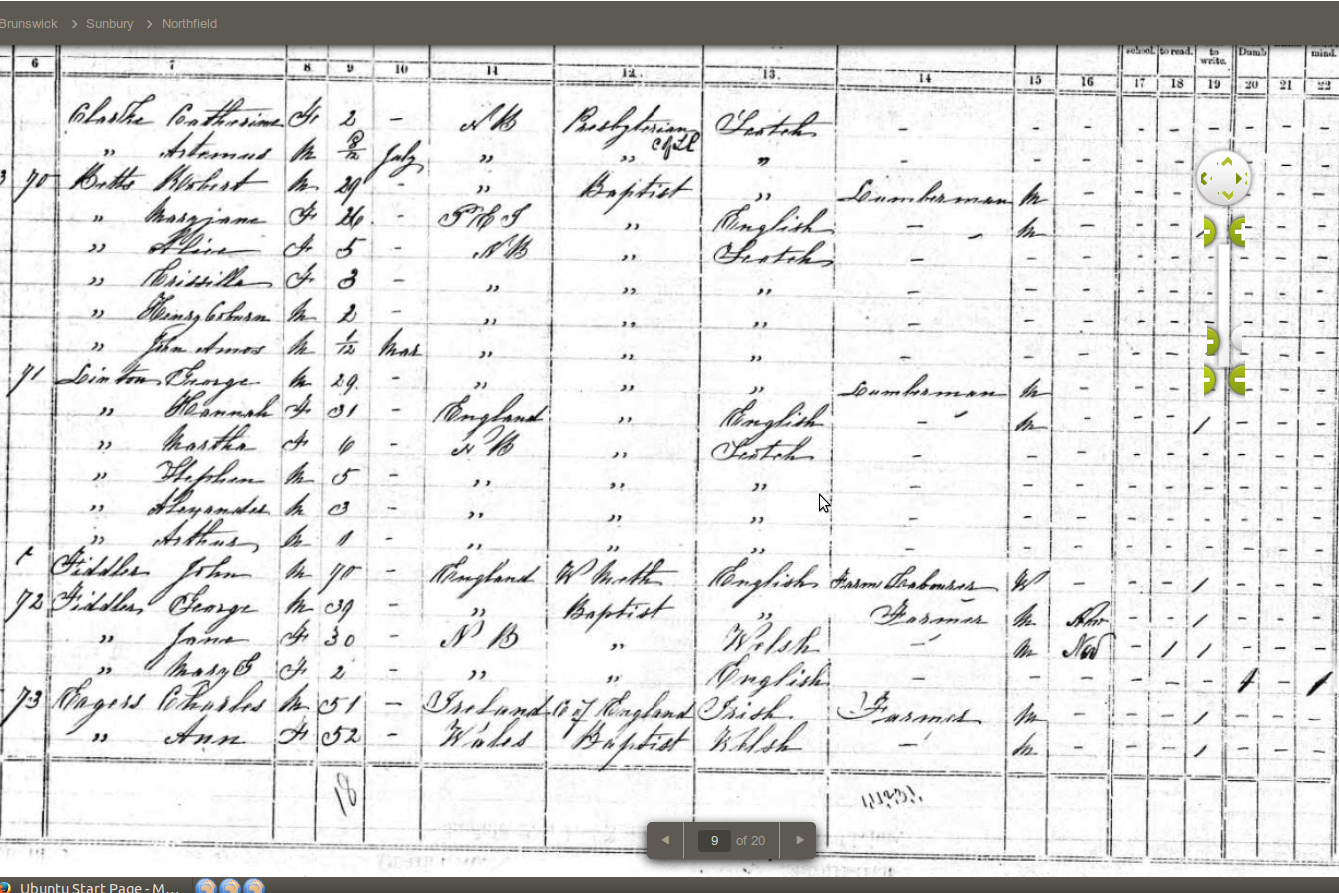 Brunswick > Sunbury > Northfield
school. to read. to write. Dumb mind.
6 7 8 9 10 11 12. 13. 14 15 16 17 18 19 20 21 22
Clarke Catherine F 2 - N B Presbyterian Scotch - - - - - - -
" Artemus M 8/12 July " " " - - - - - - -
70 Betts Robert M 29 - " Baptist " Lumberman M - - - - - -
" Maryjane F 26 - P E I " English - - M - - - - -
" Alice F 5 - N B " Scotch - - - - - - -
" F 3 - " " " - - - - - - -
" Henry Coburn M 2 - " " " - - - - - - -
" John Amos M 1/12 Mar " " " - - - - - - -
71 Linton George M 29. - " " " Lumberman M - - - - - -
" Hannah F 31 - England " English - M - - 1 - - -
" Martha F 6 - N B " Scotch - - - - - -
" Stephen M 5 - " " " - - - - - - -
" Alexander M 3 - " " " - - - - - - -
" Arthur M 1 - " " " - - - - - - -
Fiddler John M 70 - England W Meth English Farm Labourer W - - 1 - - -
72 Fiddler George M 39 - " Baptist " Farmer M Nov - - 1 - - -
" Jane F 30 - N B " Welsh - M Nov - 1 1 - - -
" Mary F 2 - " " English - - - - 1 - 1
73 Eagers Charles M 51 - Ireland C of England Irish Farmer M - - 1 - - -
" Ann F 52 - Wales Baptist Welsh - M - - 1 - - -
18
9 of 20
Ubuntu Start Page - M...